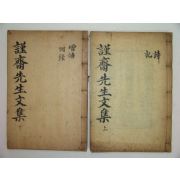 謹齋先生文集 上
詩
記
謹齋先生文集
增補